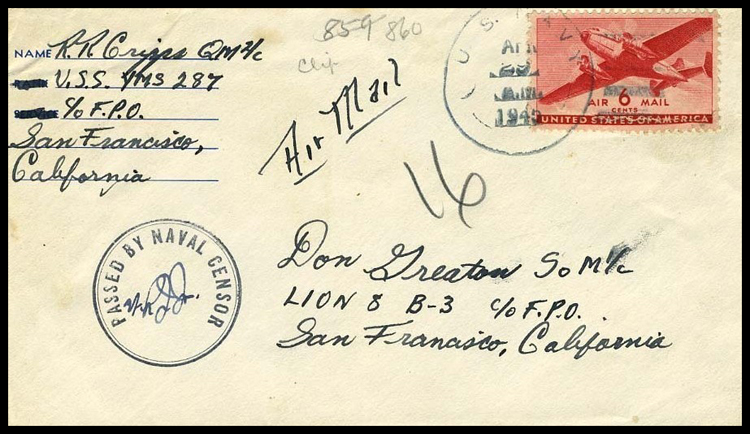 NAME R.R. Cripps QM 2/c
U.S.S. YMS 287
c/o F.P.O.
San Francisco,
California
859 860
Air Mail
16
U.S. NAVY
APR
A.M.
AIR 6 MAIL
CENTS
UNITED STATES OF AMERICA
PASSED BY NAVAL CENSOR
Don Greaton SoM 1/c
LION 8 B-3 c/o F.P.O.
San Francisco, California